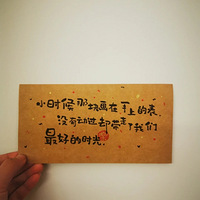 小时候那块画在手上的表,
没有动过却带走了我们
最好的时光